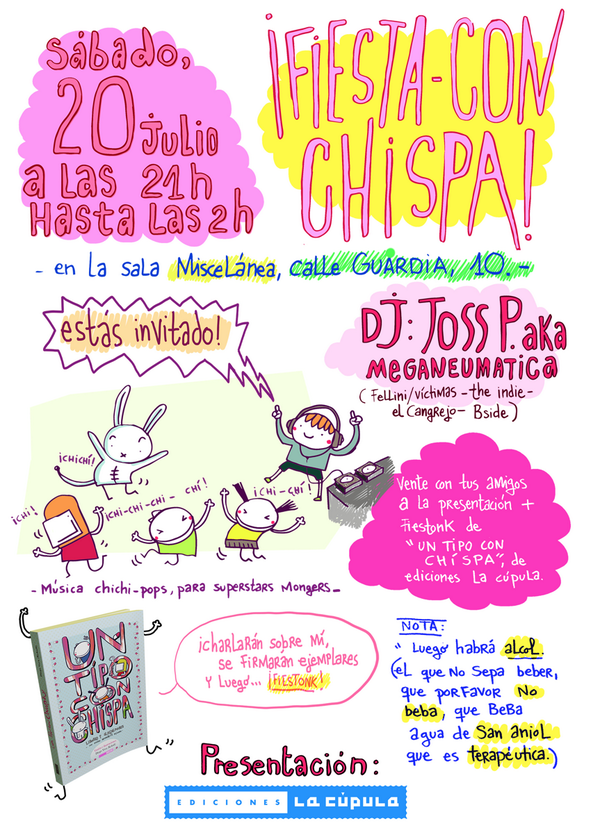 Sábado,
20 Julio
a Las 21h
Hasta Las 2h
¡FIESTA-CON
CHISPA!
- en La sala Miscelánea, calle GUARDIA, 10.-
estás invitado!
DJ: JOSS P. aka
MEGANEUMATICA
(Fellini/víctimas - the indie -
el Cangrejo - Bside)
¡CHICHÍ!
¡CHI!
¡CHI-CHI-CHI - CHÍ!
¡CHI-CHÍ!
Vente con tus amigos
a la presentación +
Fiestonk de
"UN TIPO CON
CHISPA", de
ediciones La cúpula.
- Música chichi-pops, para superstars Mongers_
UN
TIPO
CON
CHISPA
¡CHARLARÁN sobre MÍ,
se FIRMARÁN ejemplares
Y Luego... ¡FIESTONK!
NOTA:
" Luego habrá aLcoL.
(eL que No Sepa beber,
que porFavor No
beba, que BeBa
agua de San anioL
que es terapéutica.)
Presentación:
EDICIONES LA CÚPULA